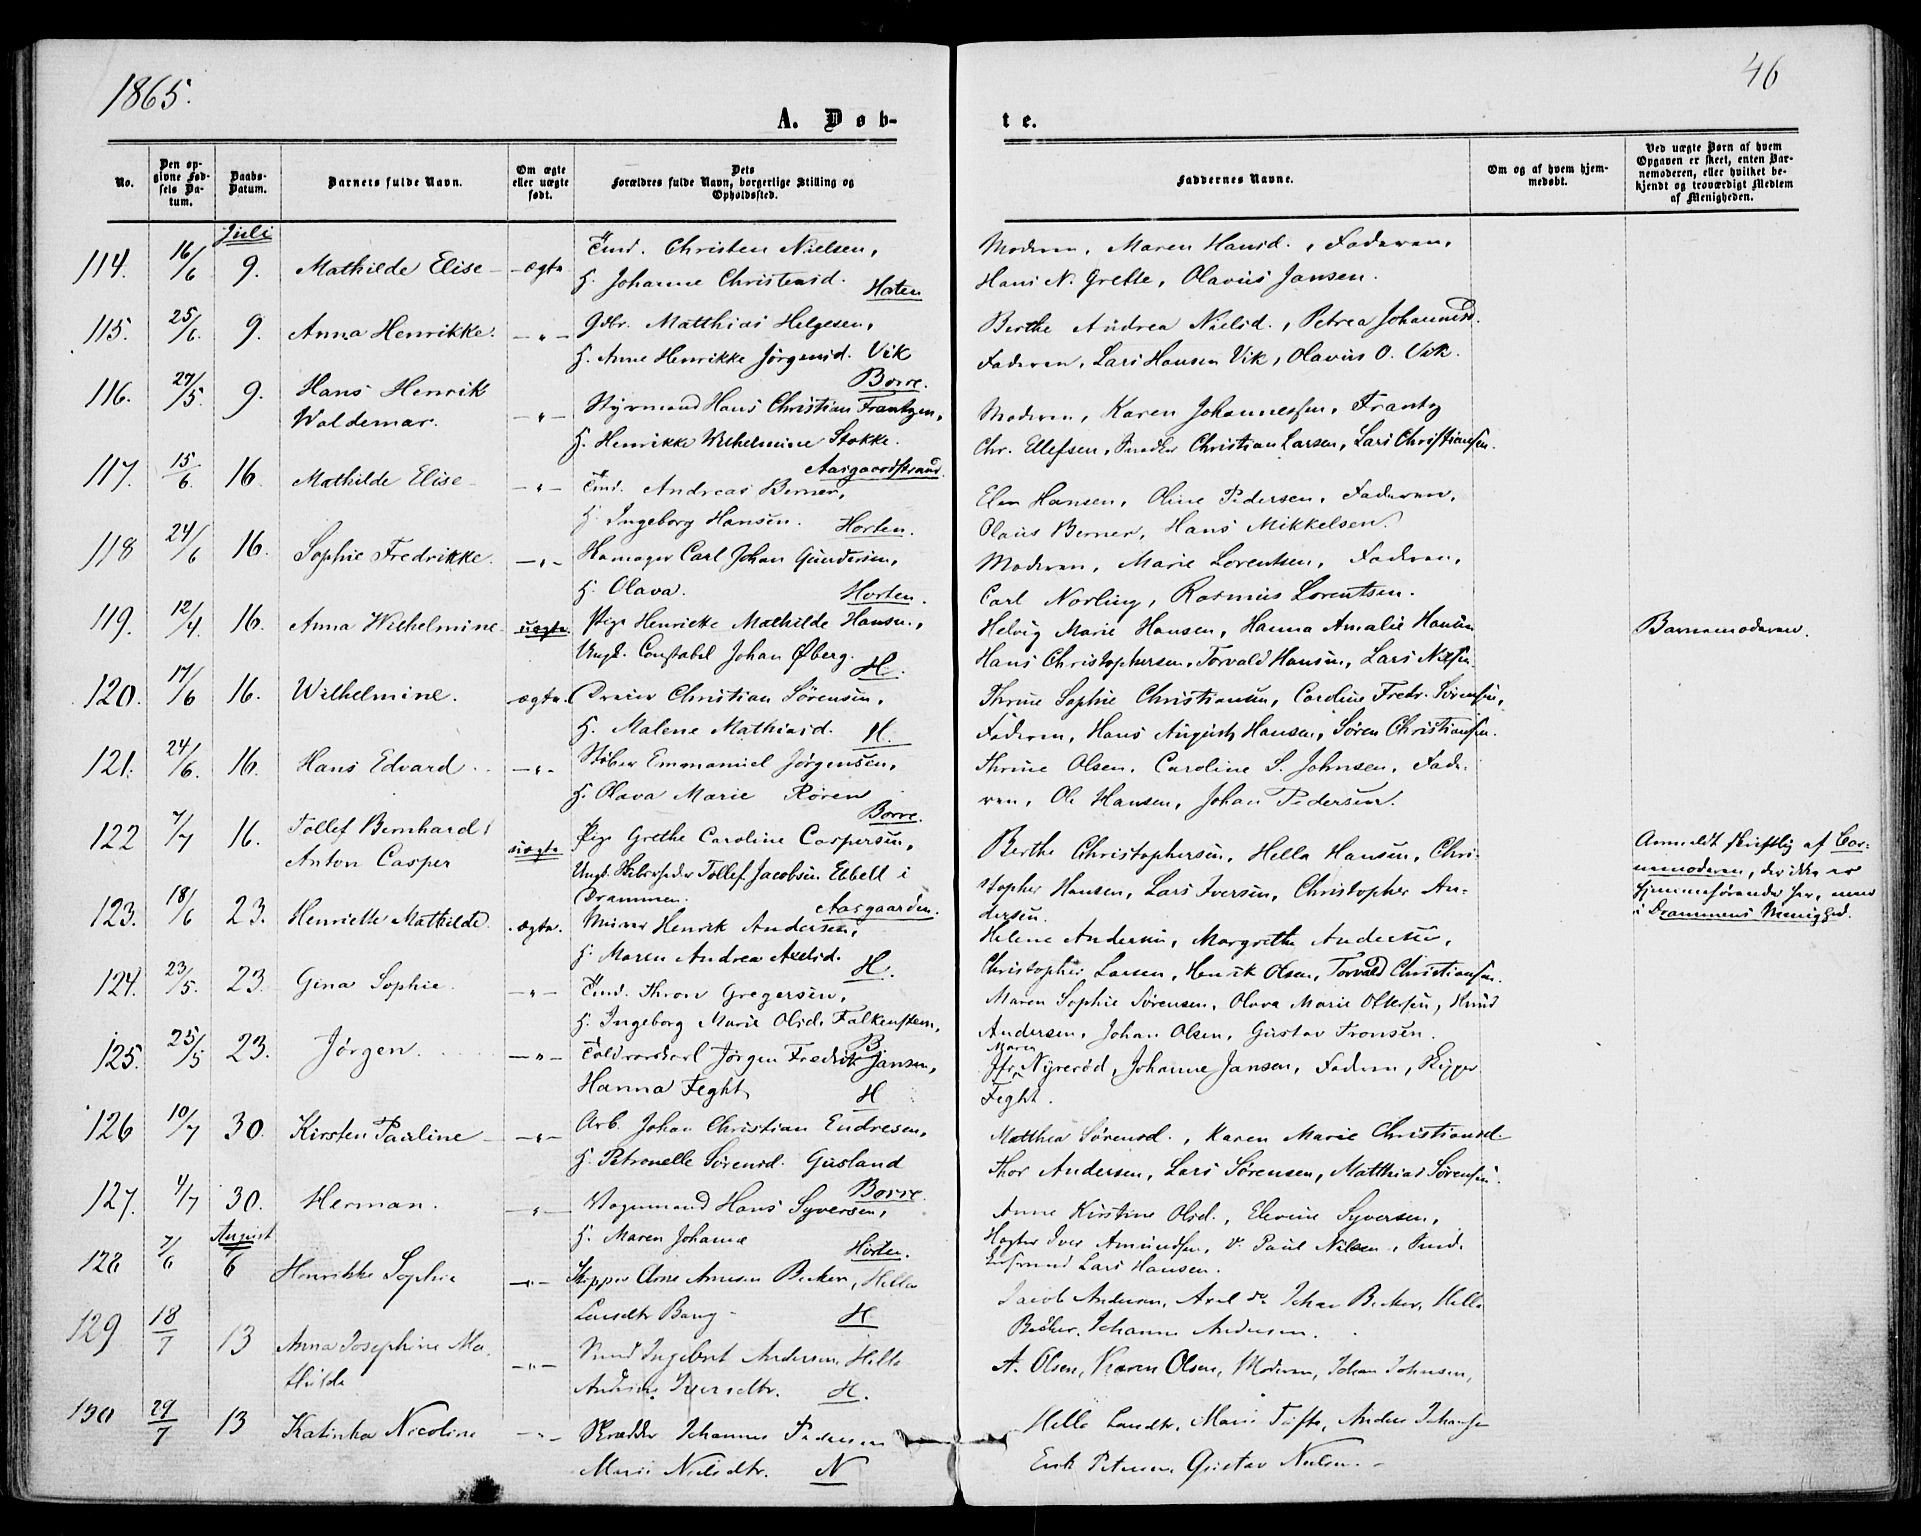 1865.
46
A. Døb-
te.
No.
Den op-
givne Fød-
sels Da-
tum.
Daabs-
Datum.
Barnets fulde Navn.
Om ægte
eller uægte
født.
Dets
Forældres fulde Navn, borgerlige Stilling og
Opholdssted.
Faddernes Navne.
Om og af hvem hjem-
medøbt.
Ved uægte Børn af hvem
Opgaven er skeet, enten Bar-
nemoderen, eller hvilket be-
kjendt og troværdigt Medlem
af Menigheden.
Juli
114. 16/6 9. Mathilde Elise - ægte
Tmd. Christen Nielsen,
H. Johanne Christensd. Horten
Moderen, Maren Hansd., Faderen,
Hans N. Grette, Olavus Jansen.
115. 25/6. 9. Anna Henrikke. -"-
Gbr. Matthias Helgesen,
H. Anne Henrikke Jørgensd. Vik
Borre.
Berthe Andrea Nielsd., Petrea Johannesd.
Faderen, Lars Hansen Vik, Olavus O. Vik.
116. 27/5. 9. Hans Henrik
Waldemar. -"-
Styrmand Hans Christian Frantzen,
H. Henrikke Wilhelmine Stokke.
Aasgaardstrand.
Moderen, Karen Johannessen, Frantz
Chr. Ellefsen, Snedker Christian Larsen, Lars Christiansen.
117. 15/6. 16. Mathilde Elise - -"-
Tmd. Andreas Berner,
H. Ingeborg Hansen. Horten.
Elen Hansen, Oline Pedersen, Faderen,
Olaus Berner, Hans Mikkelsen.
118 24/6 16. Sophie Fredrikke. -"-
Kanoner Carl Johan Gundersen,
H. Olava. Horten.
Moderen, Marie Lorentsen, Faderen,
Carl Norling, Rasmus Lorentsen.
119. 12/4. 16. Anna Wilhelmine uægte
Pige Henriette Mathilde Hansen,
Ungk. Constabel Johan Øberg. H.
Helvig Marie Hansen, Hanna Amalie Hansen
Hans Christophersen, Torvald Hansen, Lars Nilsen.
Barnemoderen.
120. 17/6 16. Wilhelmine. ægte.
Dreier Christian Sørensen,
H. Malene Mathiasd. H.
Thrine Sophie Christiansen, Caroline Fredr. Sørensen,
Faderen, Hans August Hansen, Søren Christiansen.
121. 24/6. 16. Hans Edvard. -"-
Støber Emmanuel Jørgensen,
H. Olava Marie Røren
Borre.
Thrine Olsen, Caroline S. Johnsen, Fade-
ren, Ole Hansen, Johan Pedersen.
122 7/7 16. Tollef Bernhard
Anton Casper uægte
Pige Grethe Caroline Caspersen,
Ungk. Tollef Jacobsen Ebbell i
Drammen. Aasgaarden.
Berthe Christophersen, Hella Hansen, Chri-
stopher Hansen, Lars Iversen, Christopher An-
dersen.
Anmeldt skriftlig af Bar-
nemoderen, der ikke er
hjemmehørende her, men
i Drammens Menighed.
123. 18/6 23. Henriette Mathilde. ægte.
Murer Henrik Andersen,
H. Maren Andrea Axelsd. H.
Helene Andersen, Margrethe Andersen,
Christopher Larsen, Henrik Olsen, Torvald Christiansen.
124. 23/5. 23. Gina Sophie. -"-
Tmd. Thron Gregersen,
H. Ingeborg Marie Olsd. Falkensten,
B.
Maren Sophie Sørensen, Olava Marie Ottersen, Knud
Andersen, Johan Olsen, Gustav Tronsen.
125. 25/5 23. Jørgen. -"-
Toldroerskarl Jørgen Fredrik Jansen,
Hanna Feght, H
Maren
Jfr. Nyrerød, Johanne Jansen, Faderen, Skipper
Feght.
126 10/7 30. Kirsten Pauline - -"-
Arb. Johan Christian Endresen,
H. Petronelle Sørensd. Gusland
Borre.
Matthea Sørensd., Karen Marie Christiansd.
Thor Andersen, Lars Sørensen, Matthias Sørensen.
127. 4/7 30. Herman. -"-
Vognmand Hans Syversen,
H. Maren Johanne Horten.
Anne Kirstine Olsd., Elevine Syversen,
Iver Amundsen, Paul Nilsen, Smd.
Lars Hansen.
August
128 7/6 6 Henrikke Sophie -"-
Skipper Arne Arnesen Becker, Hella
Larsdtr Bang - H
Jacob Andersen, Axel do Johan Becker, Hella
Becker, Johanne Andersen.
129 18/7 13 Anna Josephine Ma-
thilde -"-
Smd Ingebret Andersen, Hella
Andrine Iversdtr. H.
A. Olsen, Karen Olsen, Moderen, Johan Johnsen,
130 29/7 13 Katinka Nicoline -"-
Skrædder Johannes Pedersen
Marie Nielsdtr. N
Hella Larsdtr, Marie Tufte, Anders Johansen
Erik Petersen, Gustav Nielsen. -